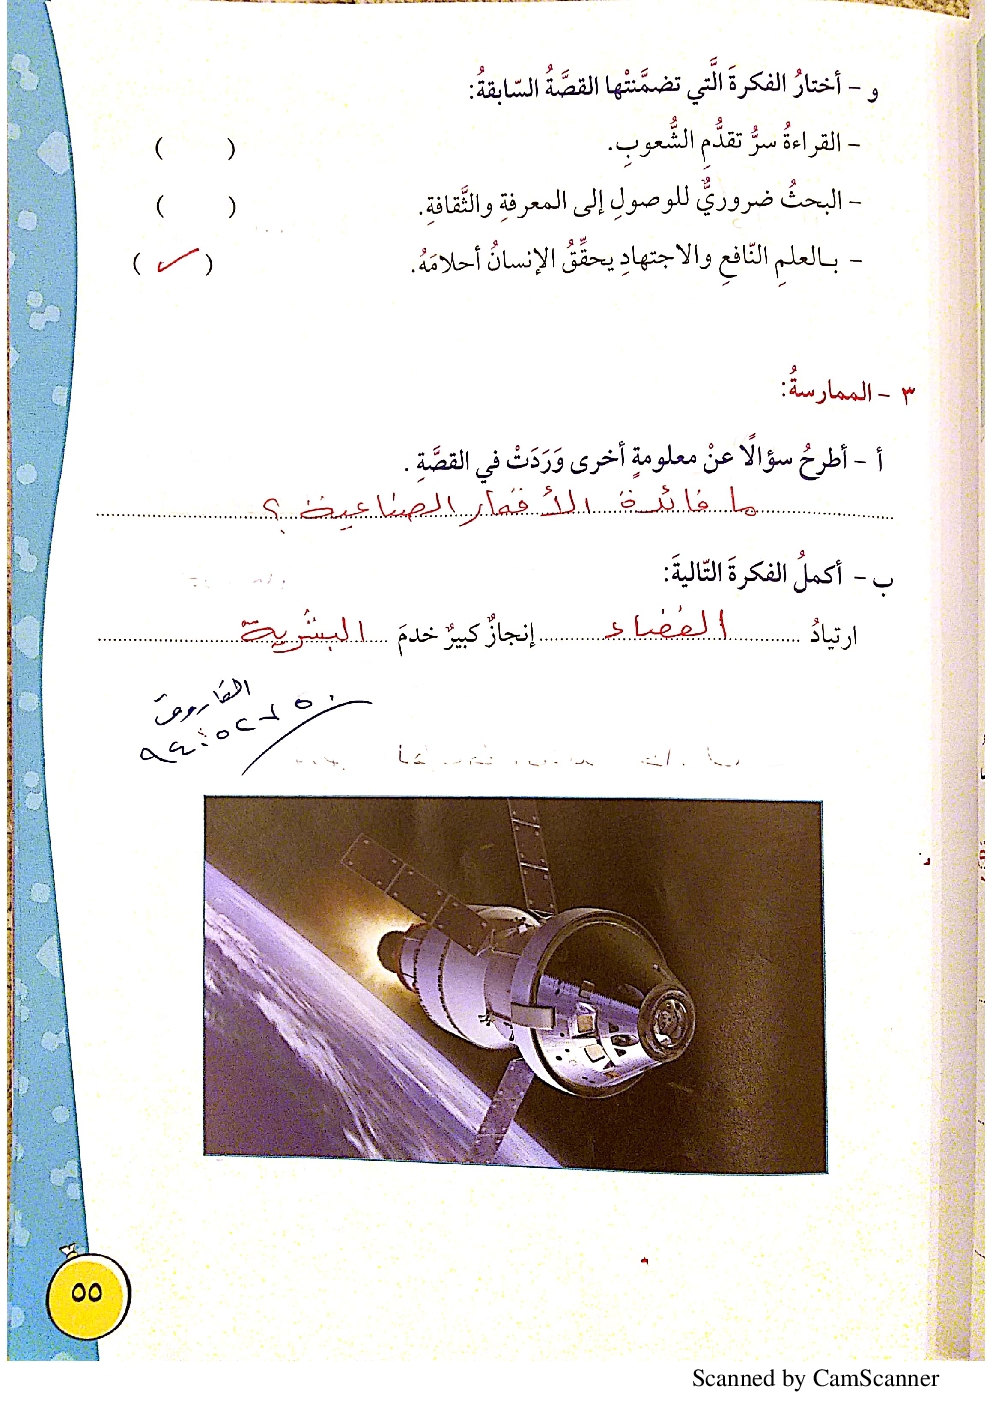 و - أختارُ الفكرةَ الَّتي تضمَّنتْها القصَّةُ السّابقةُ:
- القراءةُ سرُّ تقدُّمِ الشُّعوبِ. ( )
- البحثُ ضروريٌّ للوصولِ إلى المعرفةِ والثَّقافةِ. ( )
- بالعلمِ النّافعِ والاجتهادِ يحقِّقُ الإنسانُ أحلامَهُ. ( ✓ )
٣ - الممارسةُ:
أ - أطرحُ سؤالًا عنْ معلومةٍ أخرى وَرَدَتْ في القصَّةِ .
ما فائدة الأقمار الصناعية ؟
ب - أكملُ الفكرةَ التّاليةَ:
ارتيادُ الفضاء إنجازٌ كبيرٌ خدمَ البشرية
الفاروق
٥٥
Scanned by CamScanner